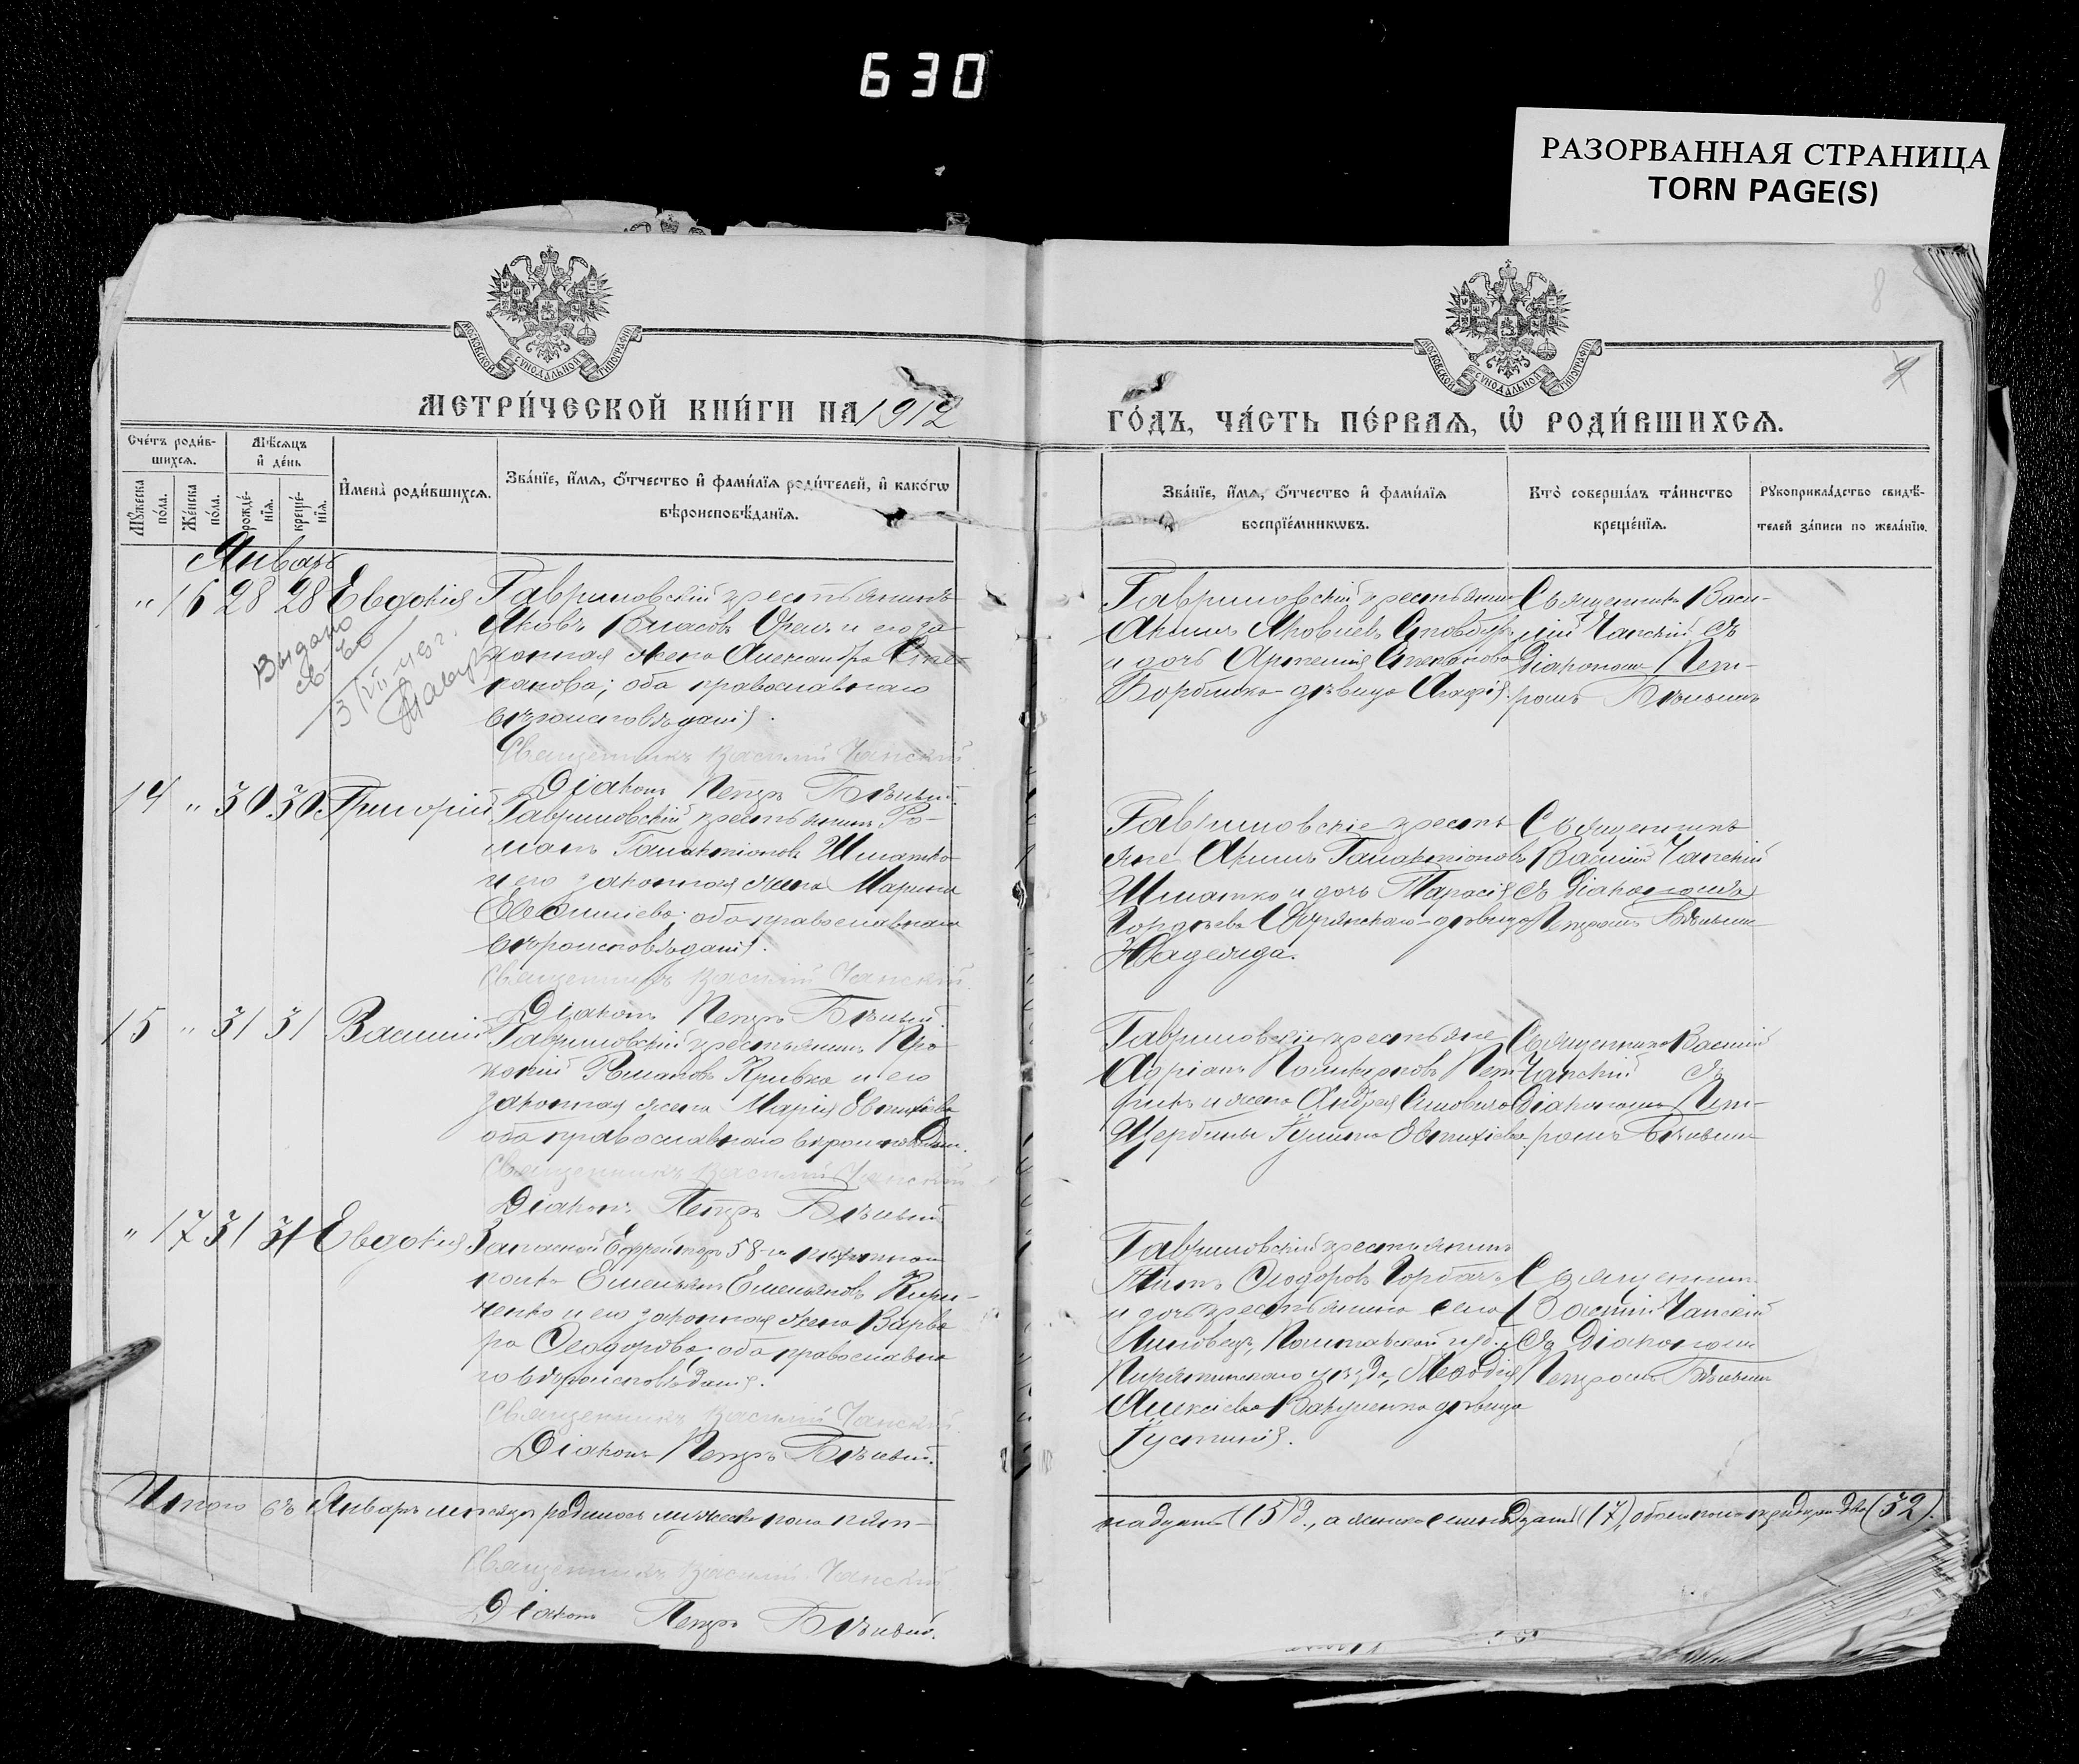 630
РАЗОРВАННАЯ СТРАНИЦА
TORN PAGE(S)
8
9
МОСКОВСКОЙ СѴНОДАЛЬНОЙ ТИПОГРАФІИ
МОСКОВСКОЙ СѴНОДАЛЬНОЙ ТИПОГРАФІИ
МЕТРИ́ЧЕСКОЙ КНИ́ГИ НА 1912
ГО́ДЪ, ЧА́СТЬ ПЕ́РВАЯ, Ѡ҆ РОДИ́ВШИХСЯ.
Сче́тъ роди́в-
шихся.
Мѣ́сяцъ
и҆ де́нь
Мꙋ́жеска
по́ла.
Же́нска
по́ла.
рожде́-
нїя.
креще́-
нїя.
И҆мена̀ роди́вшихся.
Зва́нїе, и҆́мя, ѻ҆́тчество и҆ фами́лїя роди́телей, и҆ како́гѡ
вѣроисповѣ́данїя.
Зва́нїе, и҆́мя, ѻ҆́тчество и҆ фами́лїя
воспрїе́мникѡвъ.
Кто̀ соверша́лъ та́инство
креще́нїя.
Рꙋкоприкла́дство свидѣ́-
телей за́писи по жела́нїю.
Январь
" 16 28 28 Евдокія
Гавриловскій крестьянинъ
Яковъ Власовъ и его за-
конная жена Александра Сте-
панова; оба православнаго
вѣроисповѣданія.
Священникъ Василій Чанскій
Діаконъ Петръ Бѣлый.
Выдано
св-во
3/VII 49 г.
Гавриловскій крестьянинъ
Акимъ Яковлевъ
и дочь Артемія Степанова
дѣвица Агафія.
Священникъ Васи-
лій Чанскій съ
Діакономъ Пет-
ромъ Бѣлымъ
14 " 30 30 Григорій
Гавриловскій крестьянинъ Ро-
манъ Галактіоновъ Шматко
и его законная жена Марина
оба православнаго
вѣроисповѣданія.
Священникъ Василій Чанскій.
Діаконъ Петръ Бѣлый.
Гавриловскіе кресть-
яне Акимъ Галактіоновъ
Шматко и дочь Тарасія
Гордѣева дѣвица
Надежда.
Священникъ
Василій Чанскій
съ Діакономъ
Петромъ Бѣлымъ
15 " 31 31 Василій
Гавриловскій крестьянинъ Про-
копій Романовъ Кривко и его
законная жена Марія Евтихіева
оба православнаго вѣроисповѣдан.
Священникъ Василій Чанскій
Діаконъ Петръ Бѣлый
Гавриловскіе крестьяне
Адріанъ Поликарповъ
и жена Андрея
Щербины Евтихіева.
Священникъ Василій
Чанскій съ
Діакономъ Пет-
ромъ Бѣлымъ
" 17 31 31 Евдокія
Запасной Ефрейторъ 58-го пѣхотнаго
полка Емельянъ Емельяновъ Кири-
ченко и его законная жена Варва-
ра Ѳеодорова; оба православна-
го вѣроисповѣданія.
Священникъ Василій Чанскій.
Діаконъ Петръ Бѣлый.
Гавриловскій крестьянинъ
Титъ Ѳеодоровъ Горбачъ
и дочь крестьянина села
Полтавской губ.,
Пирятинскаго уѣзда,
Алексіева Вакуленко дѣвица
Іустинія.
Священникъ
Василій Чанскій
съ Діакономъ
Петромъ Бѣлымъ
Итого въ Январѣ мѣсяцѣ родилось мужеска пола пят-
надцать (15) д., а женска семнадцать (17), обоего пола тридцать два (32).
Священникъ Василій Чанскій
Діаконъ Петръ Бѣлый.